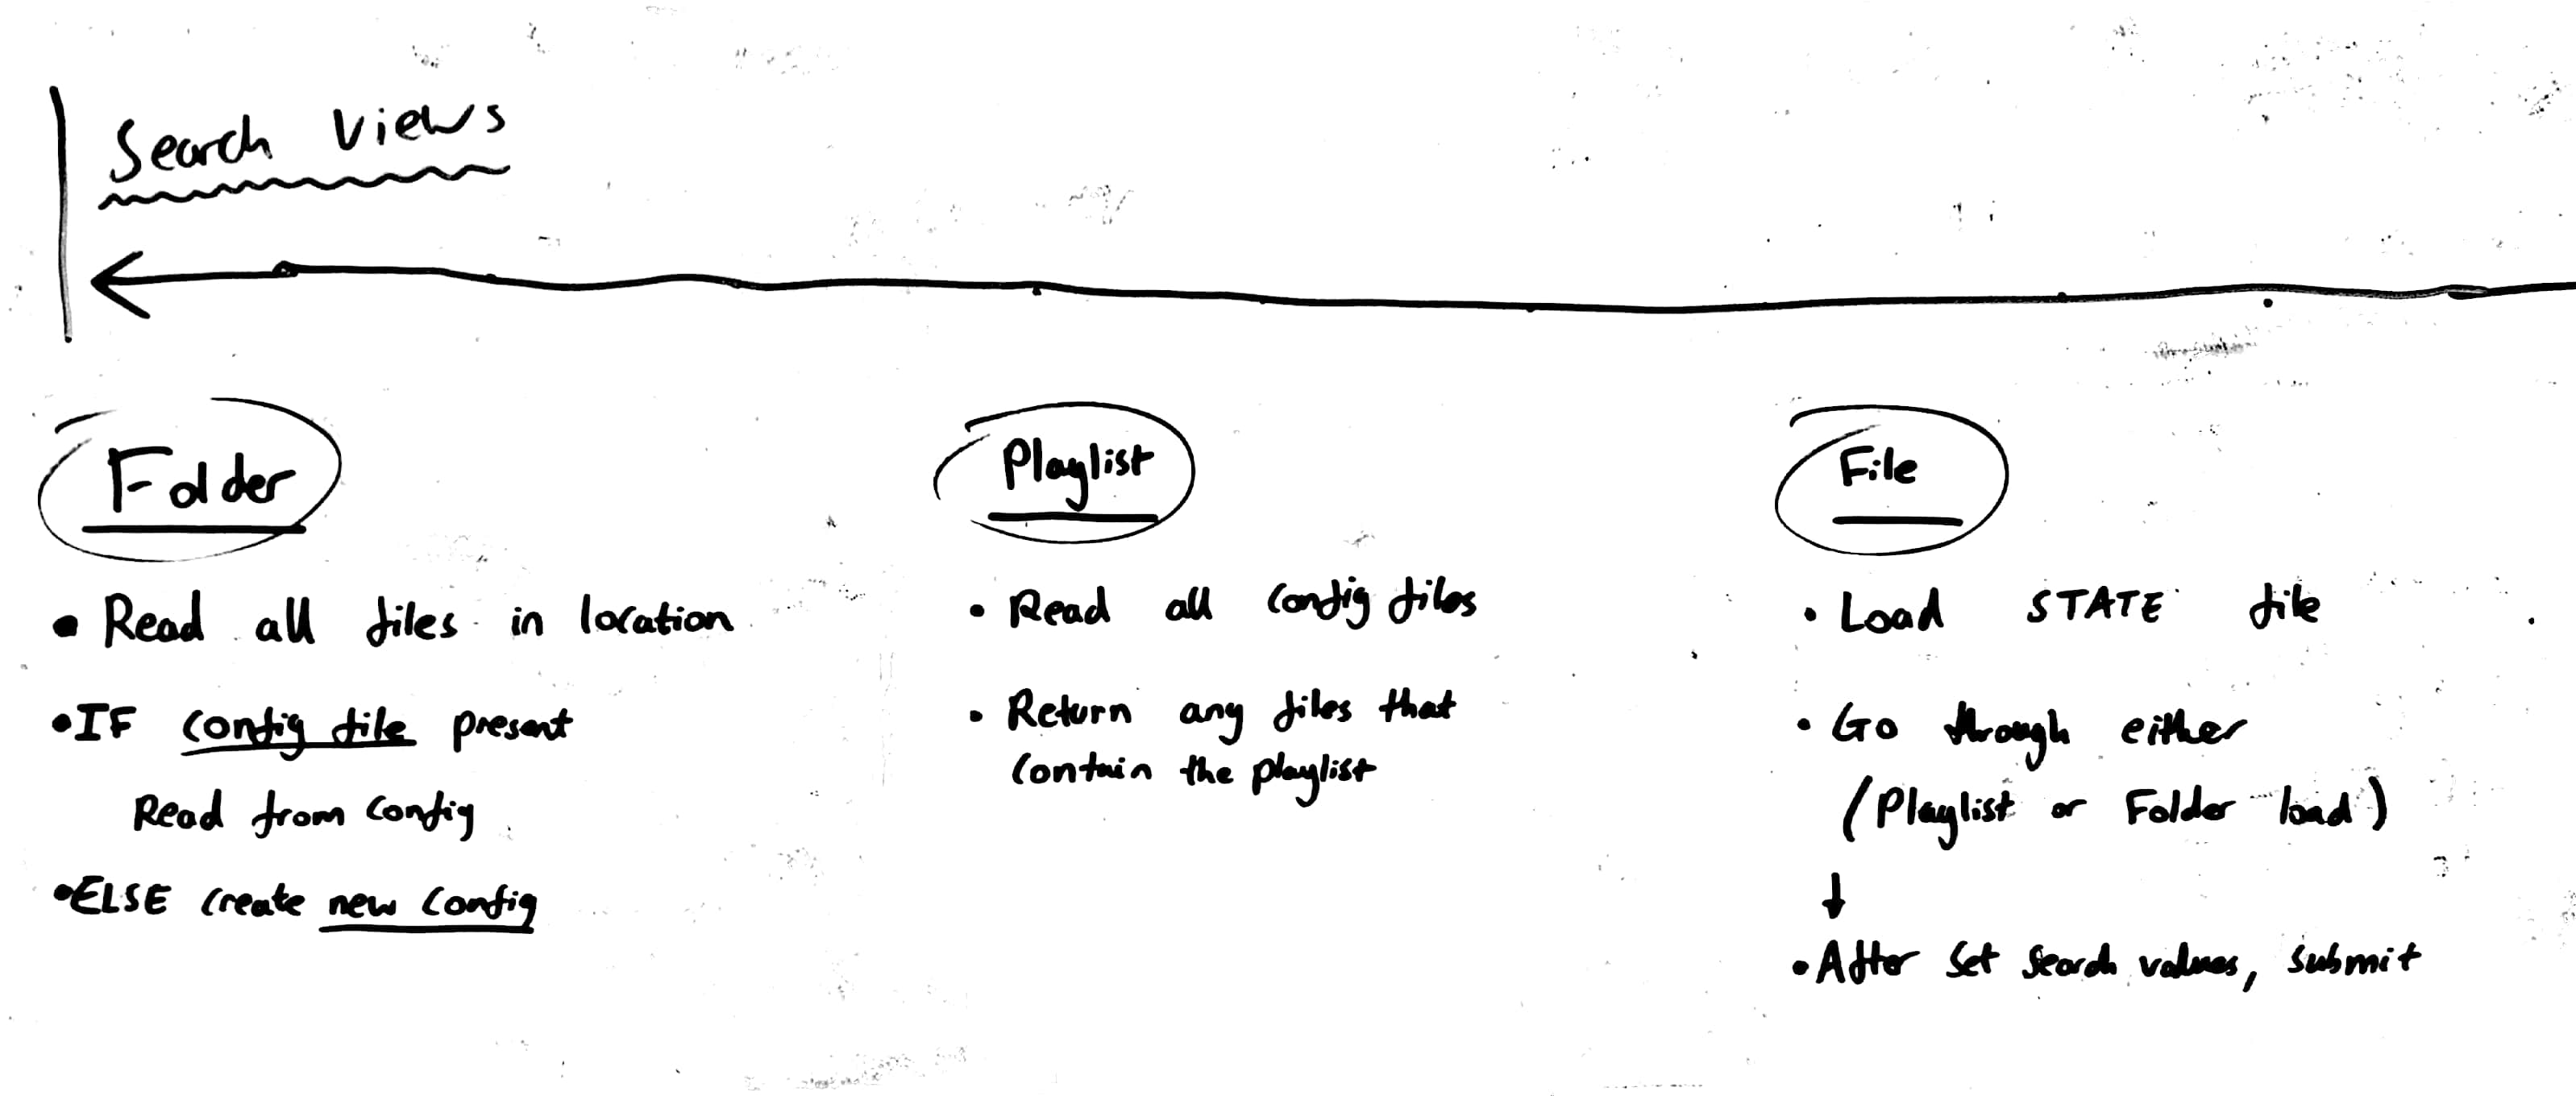 Search Views
Folder
• Read all files in location
• IF config file present
Read from config
• ELSE create new config
Playlist
• Read all config files
• Return any files that
contain the playlist
File
• Load STATE file
• Go through either
(Playlist or Folder load)
↓
• After set search values, submit